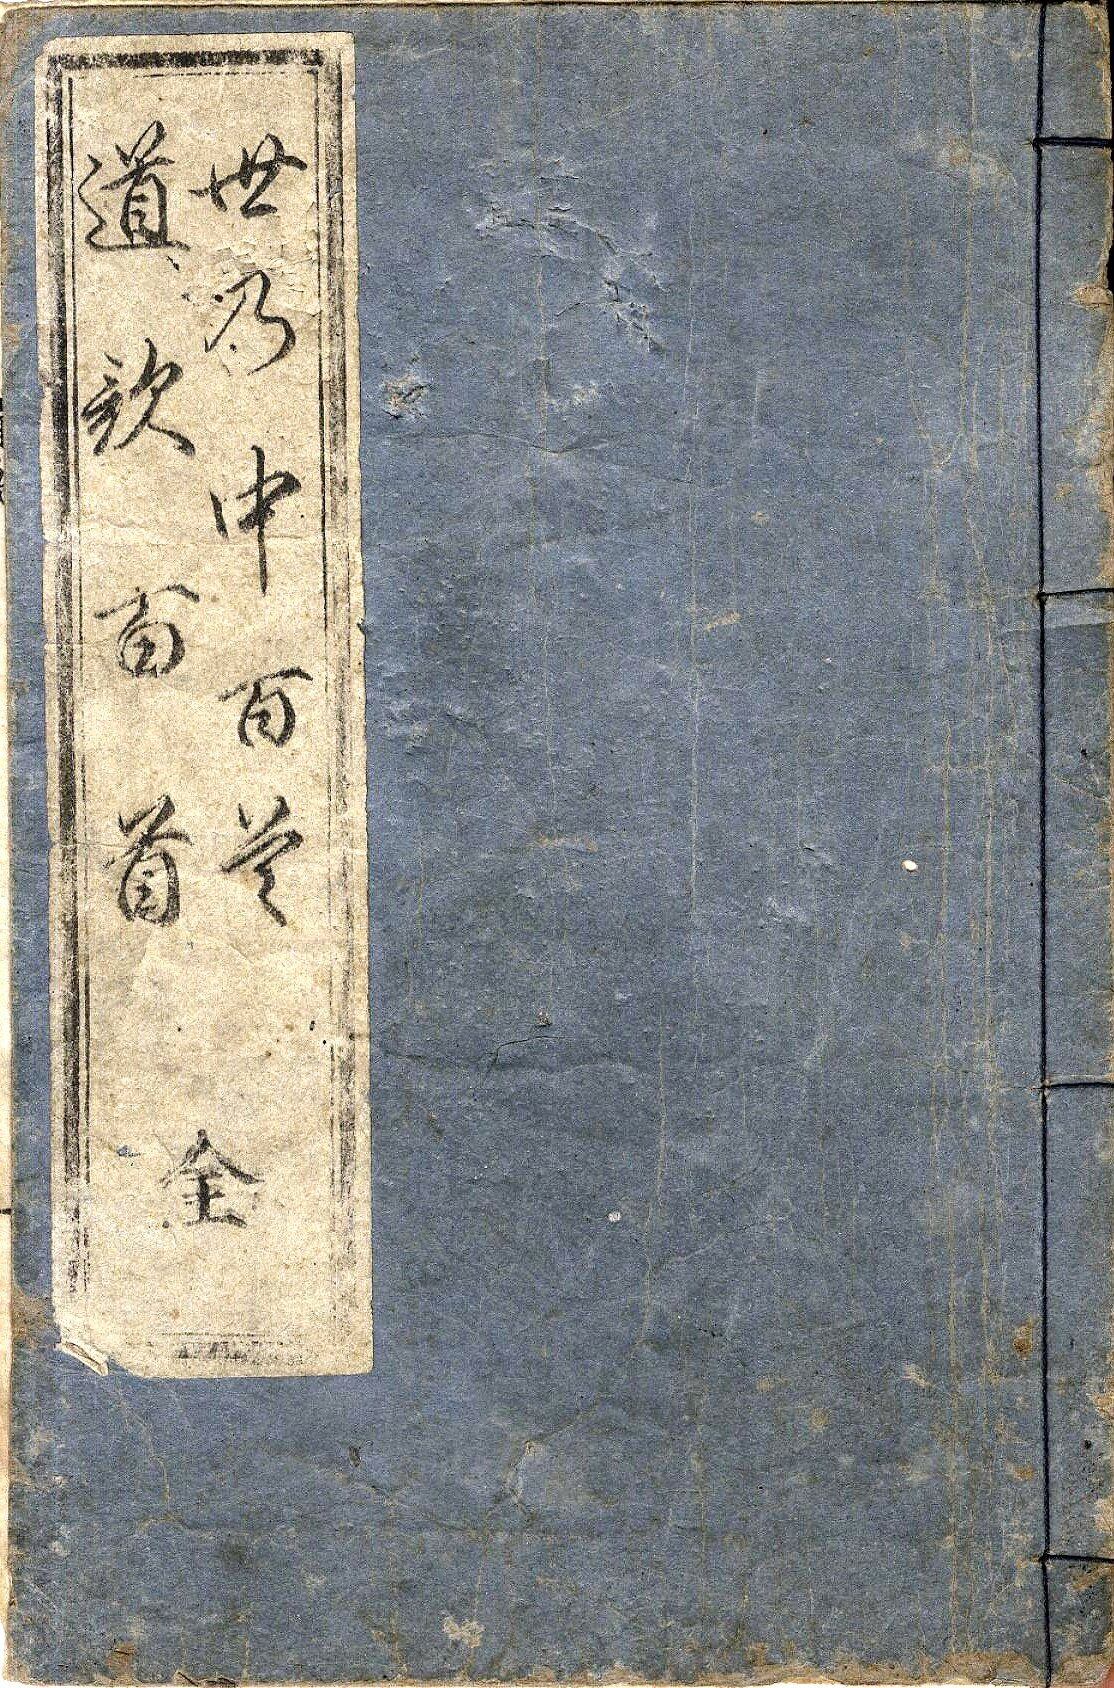 世乃中百首
道歌百首
全